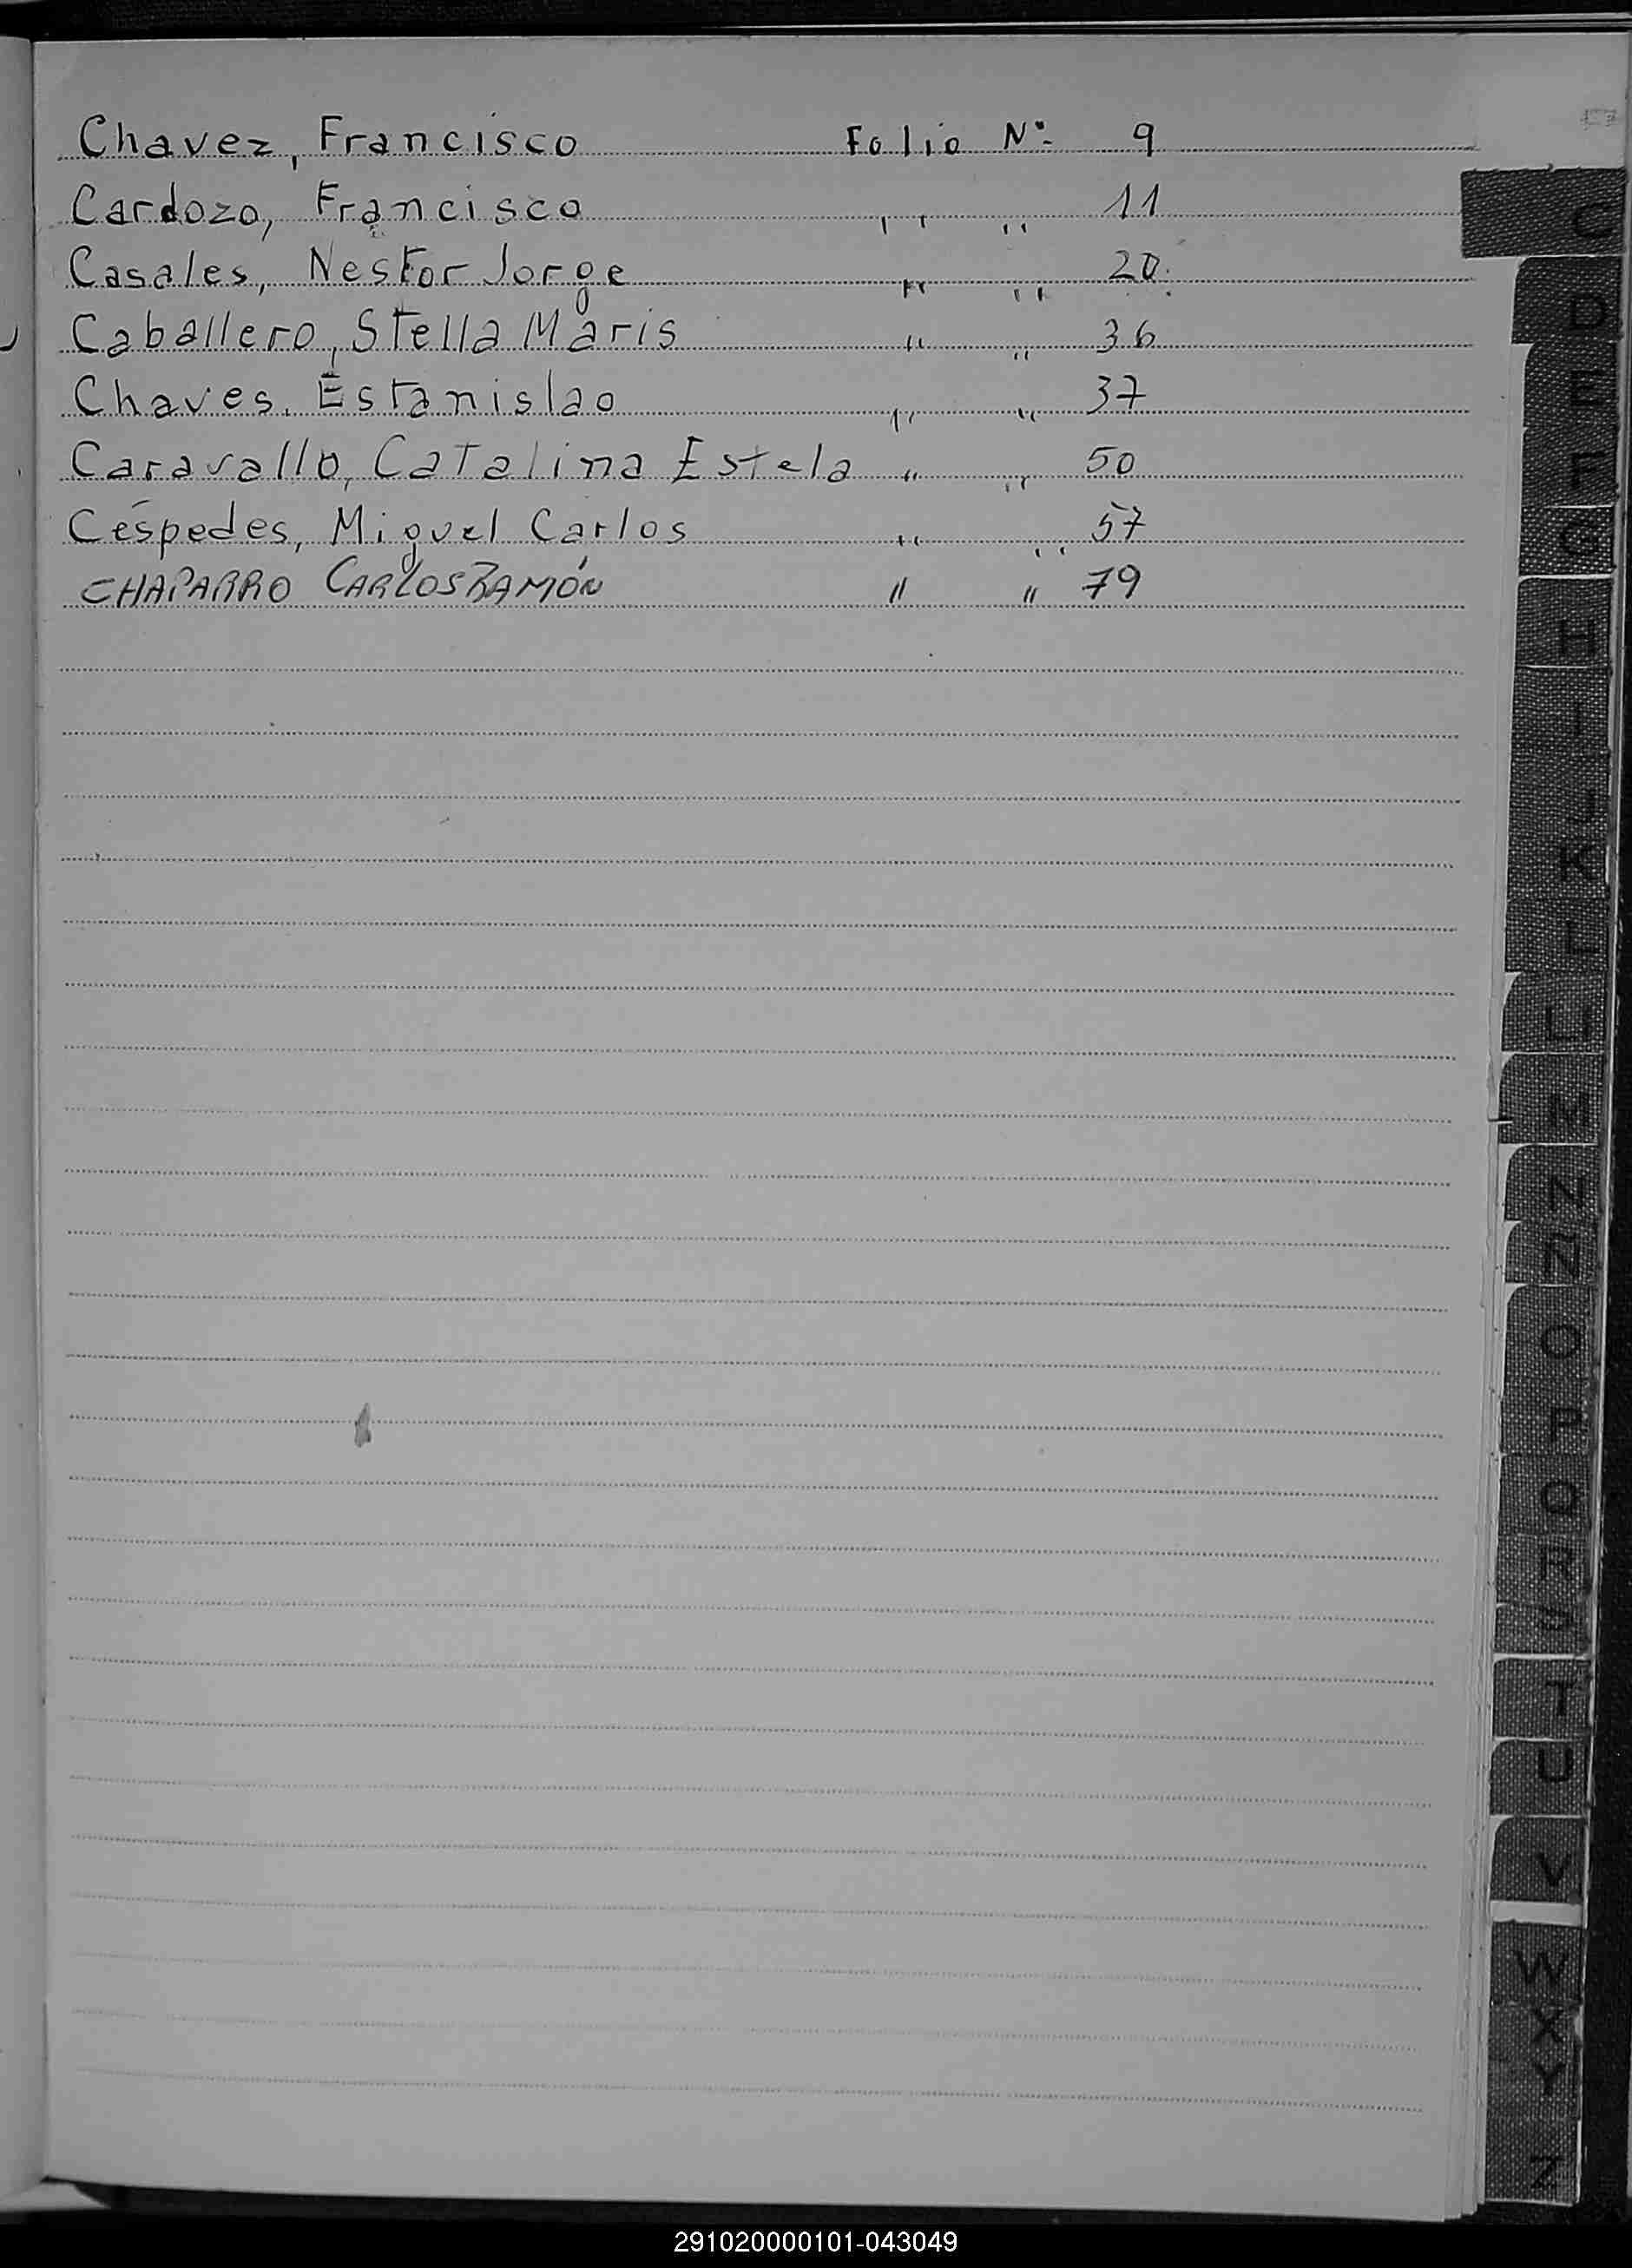 Chavez, Francisco Folio Nº 9
Cardozo, Francisco ,, ,, 11
Casales, Nestor Jorge ,, ,, 20
Caballero, Stella Maris ,, ,, 36
Chaves, Estanislao ,, ,, 37
Caravallo, Catalina Estela ,, ,, 50
Céspedes, Miguel Carlos ,, ,, 57
CHAPARRO CARLOS RAMÓN " " 79
C
D
E
F
G
H
I
J
K
L
Ll
M
N
Ñ
O
P
Q
R
S
T
U
V
W
X
Y
Z
291020000101-043049